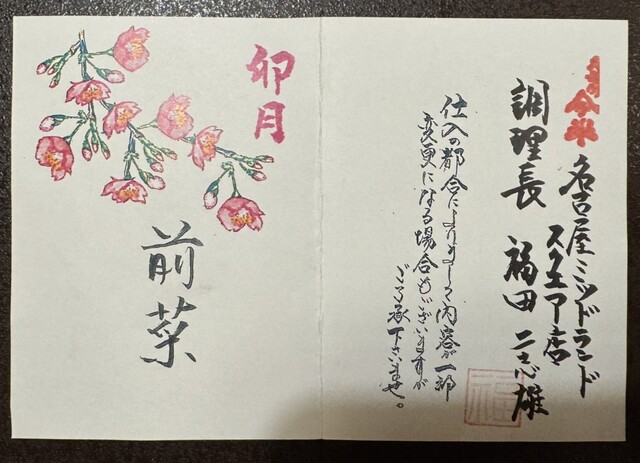 名古屋ミッドランド
スクエア店
調理長 福田
仕入の都合によりまして内容が一部
変更になる場合もございますが
ご了承下さいませ。
福
卯月
前菜